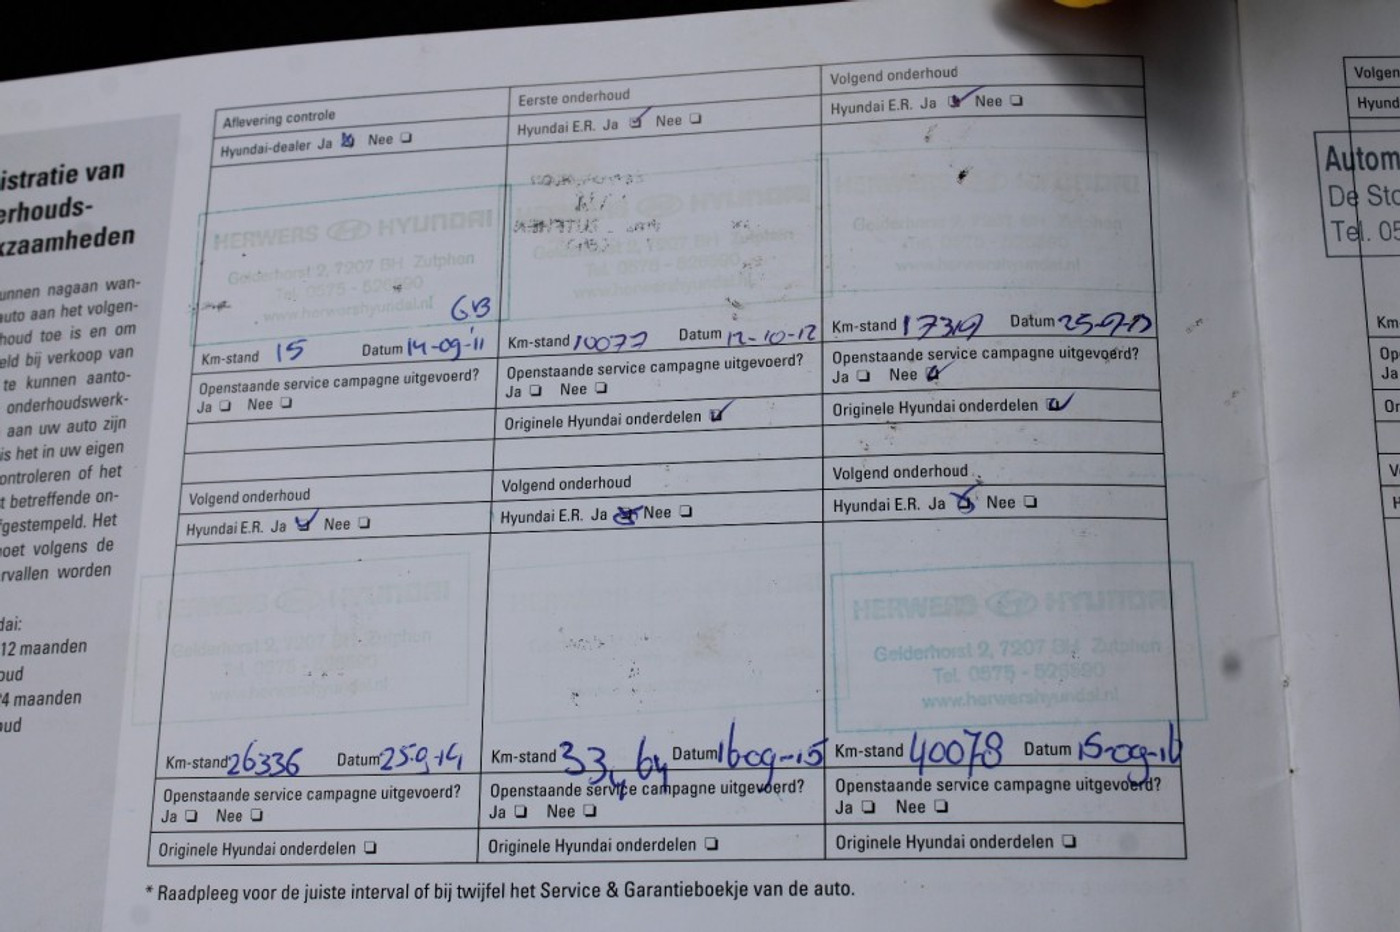 istratie van
erhouds-
kzaamheden
unnen nagaan wan-
auto aan het volgen-
houd toe is en om
eld bij verkoop van
te kunnen aanto-
onderhoudswerk-
aan uw auto zijn
is het in uw eigen
ontroleren of het
t betreffende on-
fgestempeld. Het
oet volgens de
rvallen worden
dai:
12 maanden
oud
4 maanden
oud
Aflevering controle
Hyundai-dealer Ja Nee
HERWERS HYUNDAI
Gelderhorst 2, 7207 BH Zutphen
Tel. 0575 - 526890
www.herwershyundai.nl
GB
Km-stand 15 Datum 14-09-11
Openstaande service campagne uitgevoerd?
Ja Nee
Eerste onderhoud
Hyundai E.R. Ja Nee
Km-stand 10077 Datum 12-10-12
Openstaande service campagne uitgevoerd?
Ja Nee
Originele Hyundai onderdelen
Volgend onderhoud
Hyundai E.R. Ja Nee
Km-stand Datum
Openstaande service campagne uitgevoerd?
Ja Nee
Originele Hyundai onderdelen
Volgend onderhoud
Hyundai E.R. Ja Nee
HERWERS HYUNDAI
Gelderhorst 2, 7207 BH Zutphen
Tel. 0575 - 526890
www.herwershyundai.nl
Km-stand 26336 Datum 25-9-14
Openstaande service campagne uitgevoerd?
Ja Nee
Originele Hyundai onderdelen
Volgend onderhoud
Hyundai E.R. Ja Nee
Km-stand Datum 16-09-15
Openstaande service campagne uitgevoerd?
Ja Nee
Originele Hyundai onderdelen
Volgend onderhoud
Hyundai E.R. Ja Nee
HERWERS HYUNDAI
Gelderhorst 2, 7207 BH Zutphen
Tel. 0575 - 526890
www.herwershyundai.nl
Km-stand 40078 Datum 15-09-16
Openstaande service campagne uitgevoerd?
Ja Nee
Originele Hyundai onderdelen
* Raadpleeg voor de juiste interval of bij twijfel het Service & Garantieboekje van de auto.
Volgen
Hyund
Autom
De Sto
Tel. 05
Km-
Op
Ja
Or
V
H